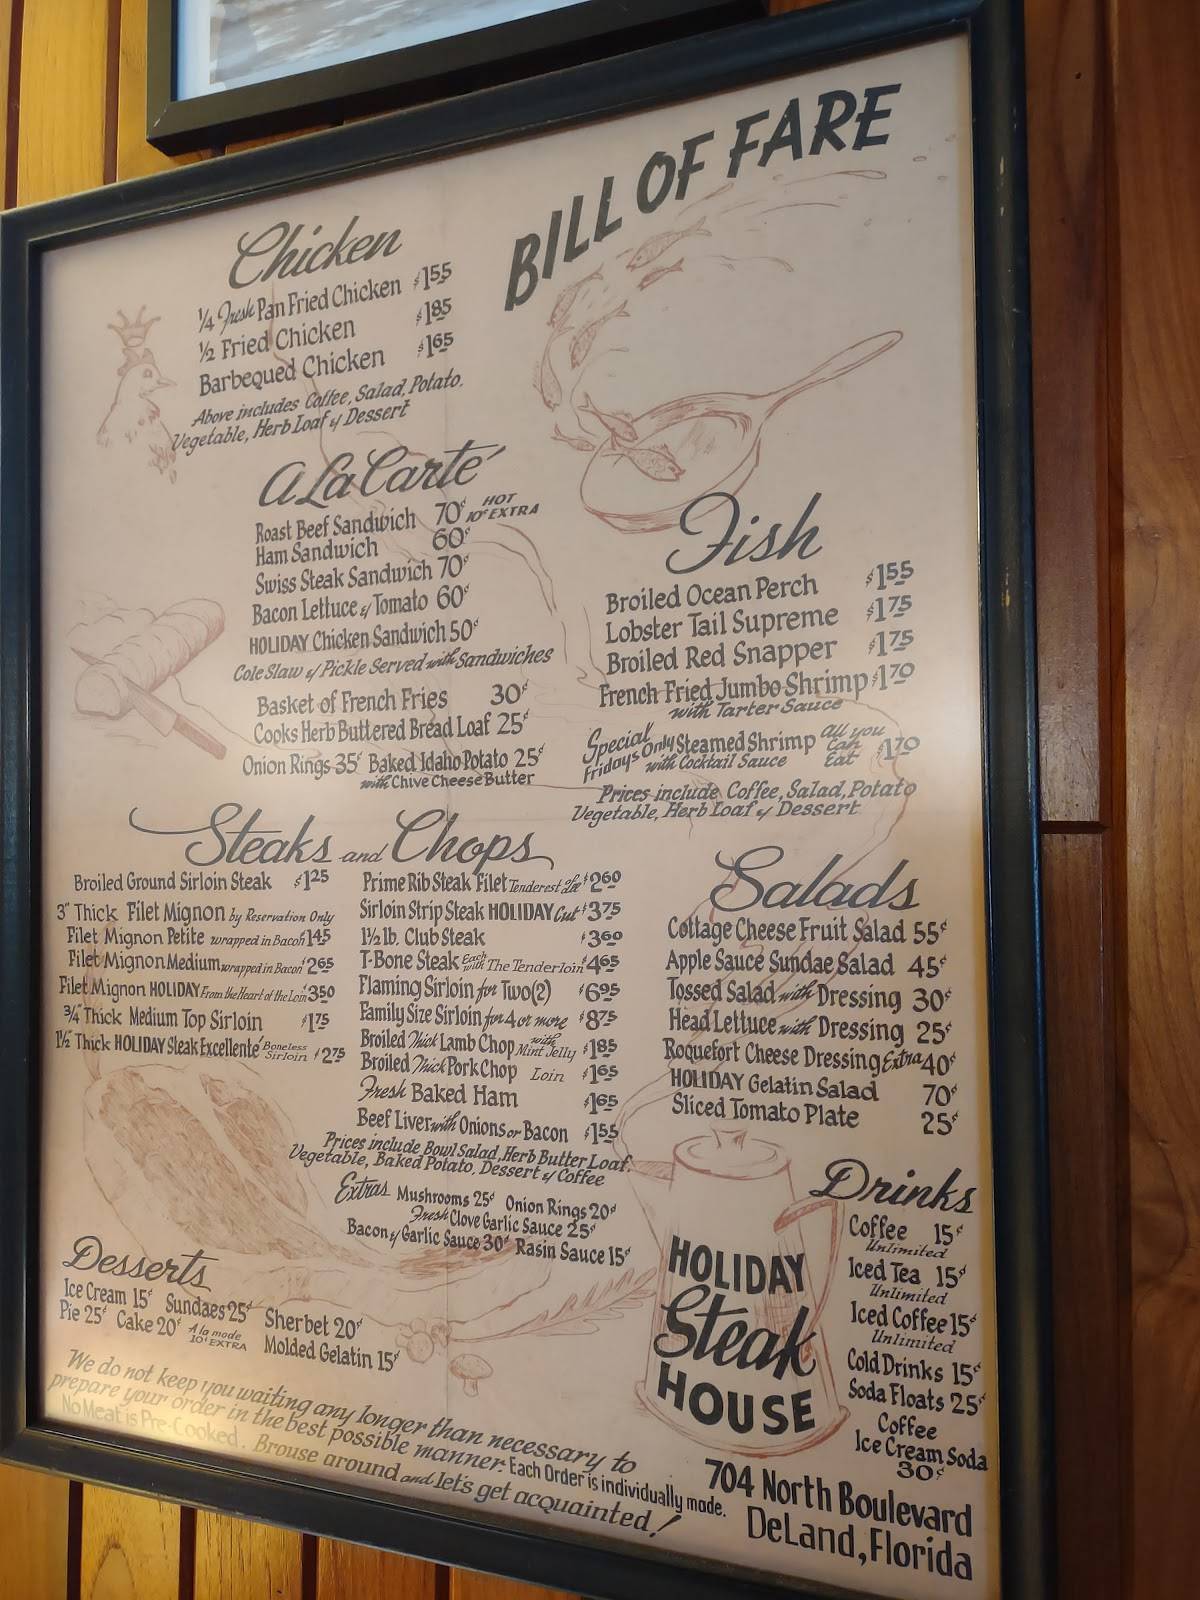 BILL OF FARE
Chicken
1/4 Fresh Pan Fried Chicken $1.55
1/2 Fried Chicken $1.85
Barbequed Chicken $1.65
Above includes Coffee, Salad, Potato,
Vegetable, Herb Loaf & Dessert
A La Carté
Roast Beef Sandwich 70¢ HOT 10¢ EXTRA
Ham Sandwich 60¢
Swiss Steak Sandwich 70¢
Bacon Lettuce & Tomato 60¢
HOLIDAY Chicken Sandwich 50¢
Cole Slaw & Pickle Served with Sandwiches
Basket of French Fries 30¢
Cooks Herb Buttered Bread Loaf 25¢
Onion Rings 35¢ Baked Idaho Potato 25¢
with Chive Cheese Butter
Fish
Broiled Ocean Perch $1.55
Lobster Tail Supreme $1.75
Broiled Red Snapper $1.75
French Fried Jumbo Shrimp $1.70
with Tarter Sauce
Special Fridays Only Steamed Shrimp All you Can Eat $1.70
with Cocktail Sauce
Prices include Coffee, Salad, Potato
Vegetable, Herb Loaf & Dessert
Steaks and Chops
Broiled Ground Sirloin Steak $1.25
3" Thick Filet Mignon by Reservation Only
Filet Mignon Petite wrapped in Bacon 1.45
Filet Mignon Medium wrapped in Bacon $2.65
Filet Mignon HOLIDAY From the Heart of the Loin $3.50
3/4" Thick Medium Top Sirloin $1.75
1 1/2" Thick HOLIDAY Steak Excellenté Boneless Sirloin $2.75
Prime Rib Steak Filet Tenderest of All $2.60
Sirloin Strip Steak HOLIDAY Cut $3.75
1 1/2 lb. Club Steak $3.60
T-Bone Steak Each with The Tenderloin $4.65
Flaming Sirloin for Two (2) $6.95
Family Size Sirloin for 4 or more $8.75
Broiled Thick Lamb Chop with Mint Jelly $1.85
Broiled Thick Pork Chop Loin $1.65
Fresh Baked Ham $1.65
Beef Liver with Onions or Bacon $1.55
Prices include Bowl Salad, Herb Butter Loaf,
Vegetable, Baked Potato, Dessert & Coffee
Extras Mushrooms 25¢ Onion Rings 20¢
Fresh Clove Garlic Sauce 25¢
Bacon & Garlic Sauce 30¢ Rasin Sauce 15¢
Salads
Cottage Cheese Fruit Salad 55¢
Apple Sauce Sundae Salad 45¢
Tossed Salad with Dressing 30¢
Head Lettuce with Dressing 25¢
Roquefort Cheese Dressing Extra 40¢
HOLIDAY Gelatin Salad 70¢
Sliced Tomato Plate 25¢
Drinks
Coffee 15¢
Unlimited
Iced Tea 15¢
Unlimited
Iced Coffee 15¢
Unlimited
Cold Drinks 15¢
Soda Floats 25¢
Coffee
Ice Cream Soda
30¢
Desserts
Ice Cream 15¢ Sundaes 25¢ Sherbet 20¢
Pie 25¢ Cake 20¢ A la mode 10¢ EXTRA Molded Gelatin 15¢
We do not keep you waiting any longer than necessary to
prepare your order in the best possible manner. Each Order is individually made.
No Meat is Pre-Cooked. Brouse around and let's get acquainted!
HOLIDAY
Steak
HOUSE
704 North Boulevard
DeLand, Florida